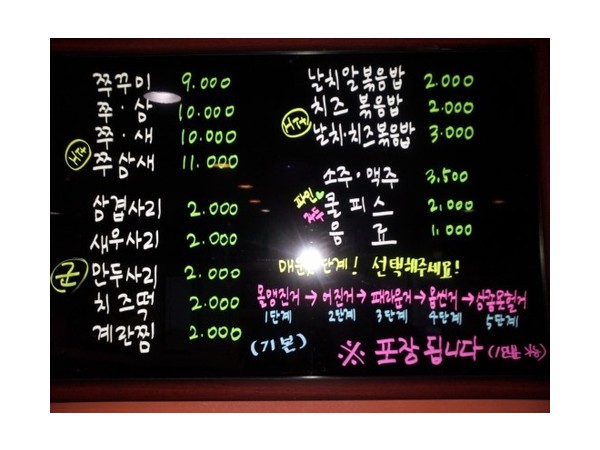 쭈꾸미 9.000
쭈·삼 10.000
쭈·새 10.000
쭈삼새 11.000
삼겹사리 2.000
새우사리 2.000
군 만두사리 2.000
치즈떡 2.000
계란찜 2.000
날치알볶음밥 2.000
치즈 볶음밥 2.000
날치·치즈볶음밥 3.000
소주·맥주 3,500
파인 자두 쿨피스 2,000
음료 1,000
단계! 선택해주세요!
몰앵진거 → 어진거 → 때라운거 → 움썬거 → 상귱못헐거
1단계 2단계 3단계 4단계 5단계
(기본)
※ 포장됩니다